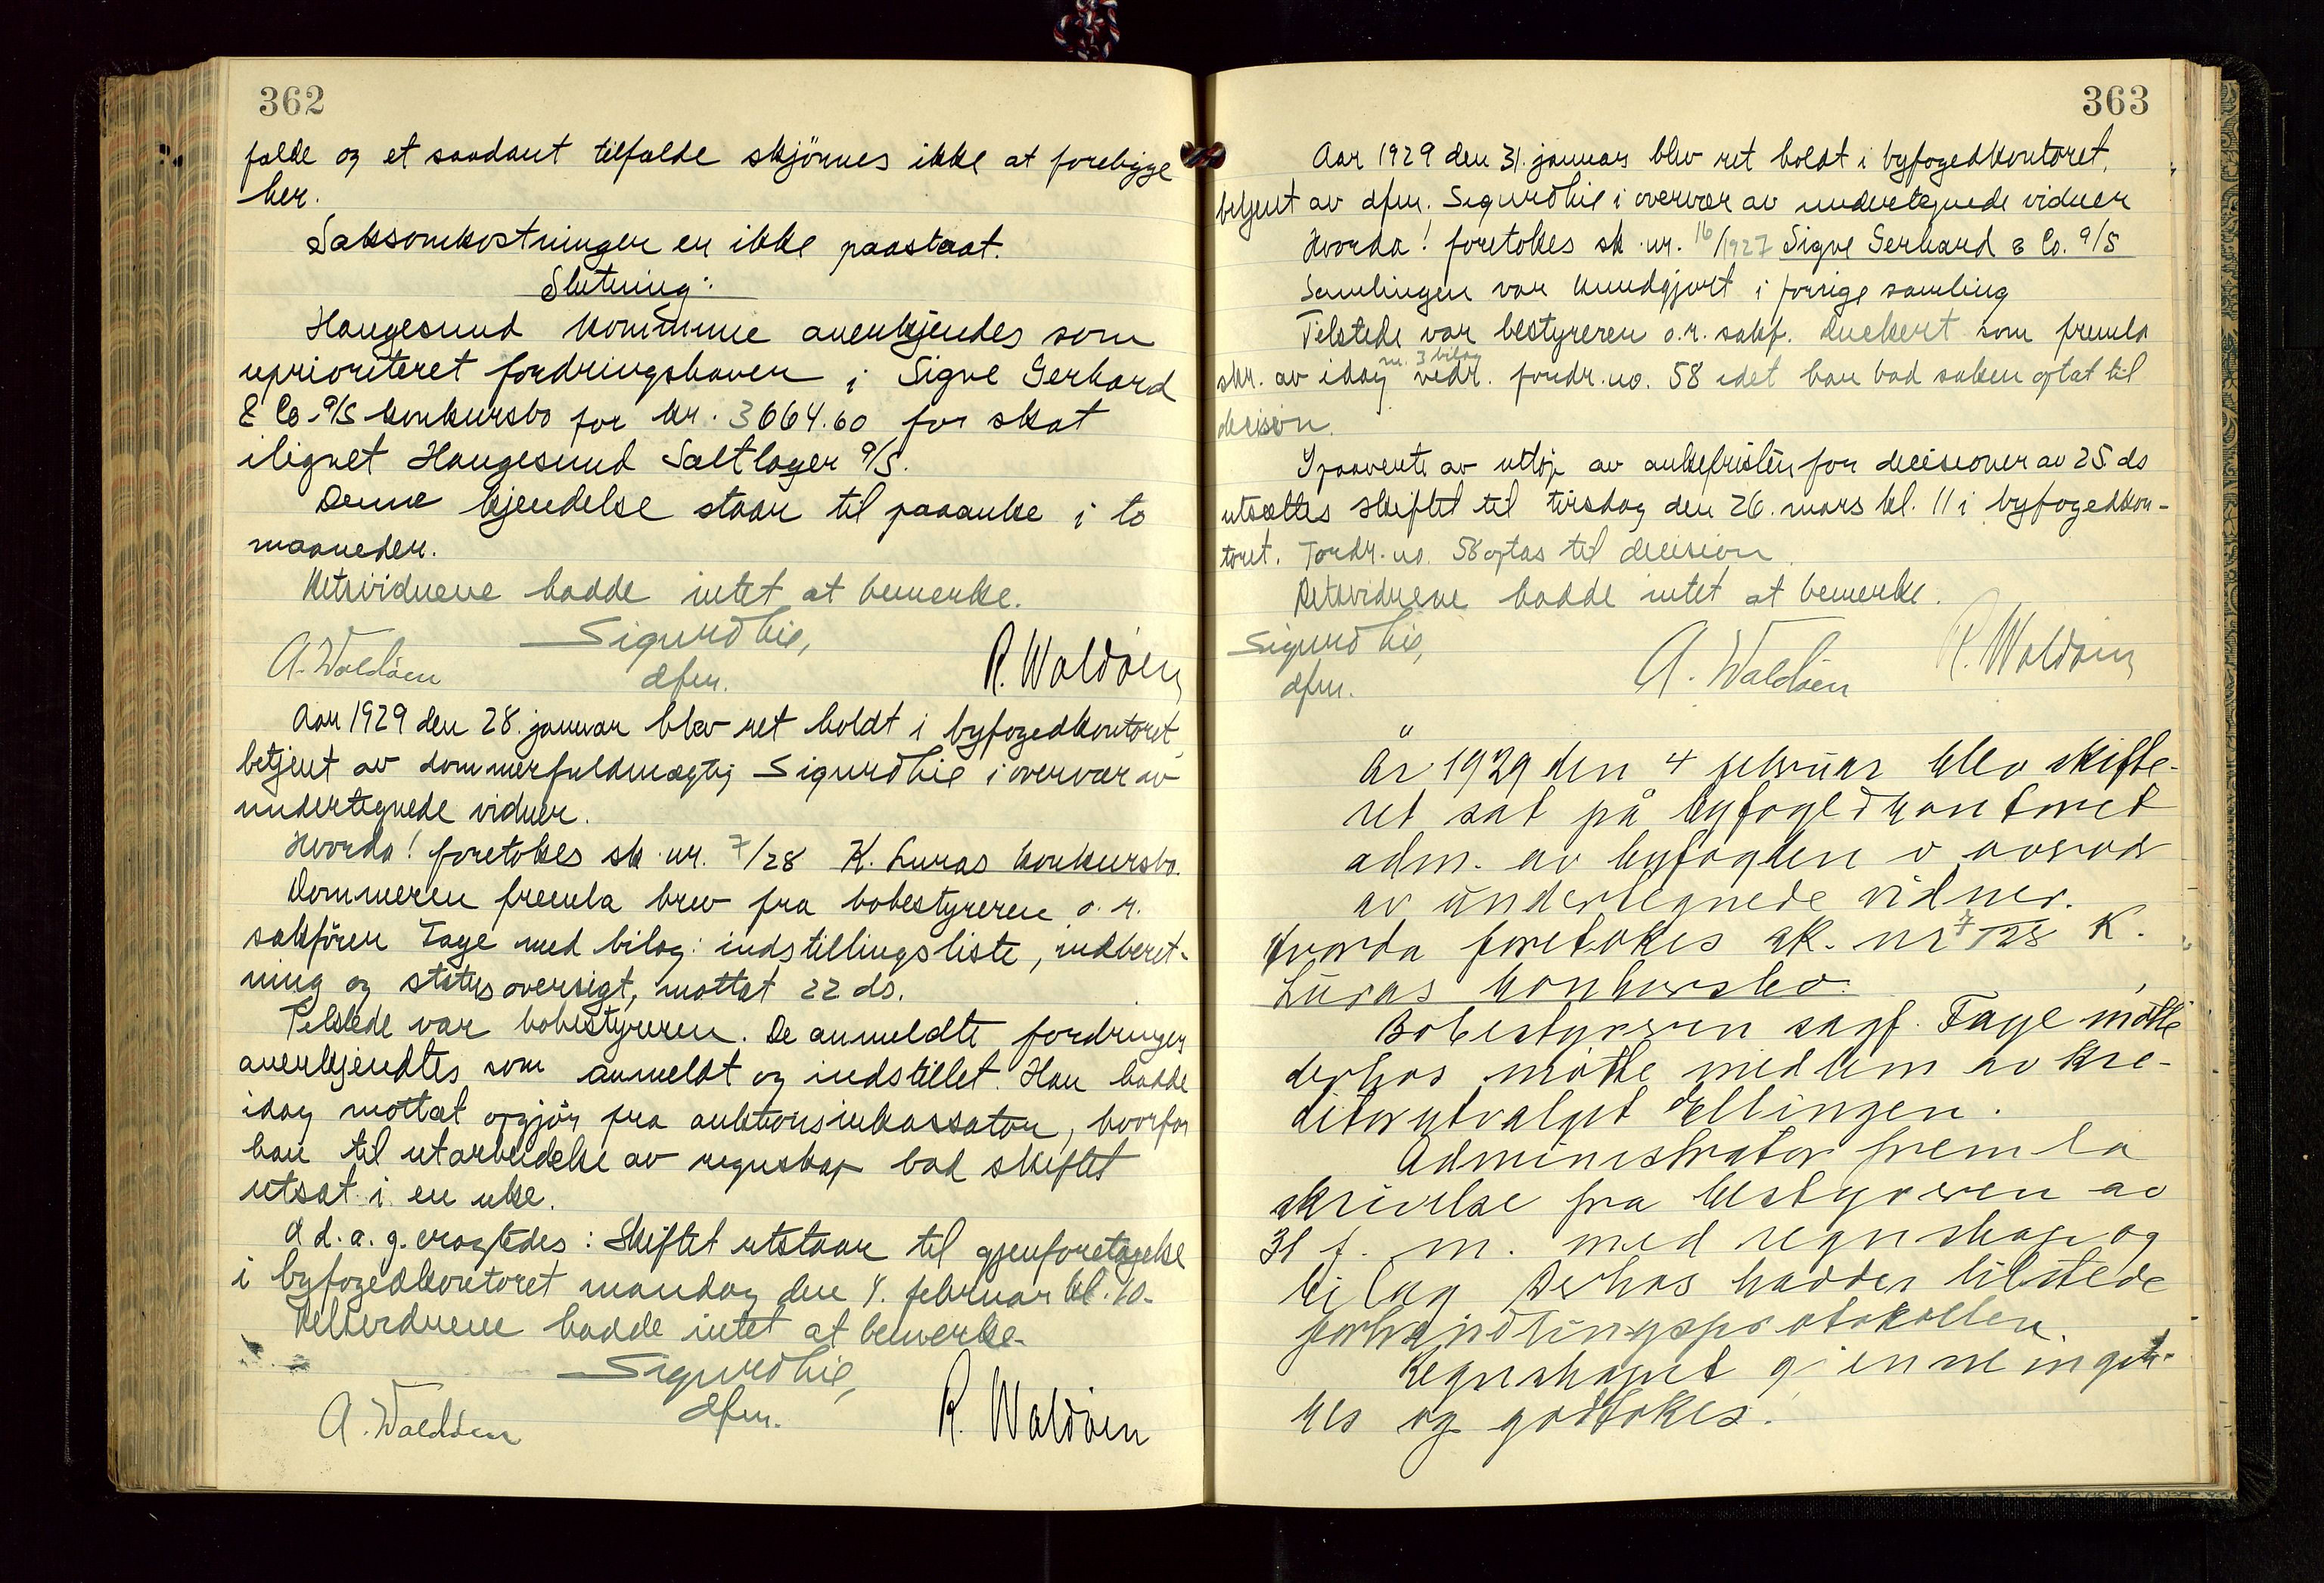 362
falde og et saadant tilfælde skjönnes ikke at forebigge
her.
Saksomkostninger er ikke paastaat.
Slutning:
Haugesund kommune anerkjendes som
uprioriteret fordringshaver i Sigve Gerhard
& Co. A/S konkursbo for kr. 3664.60 for skat
ilignet Haugesund Saltlager A/S.
Denne kjendelse staar til paaanke i to
maaneder.
Retsvidnene hadde intet at bemerke.
Sigurd Lie,
dfm.
A. Waldöen
R. Waldöen
Aar 1929 den 28. januar blev ret holdt i byfogedkontoret,
betjent av dommerfuldmægtig Sigurd Lie i overvær av
undertegnede vidner.
Hvorda! foretokes sk.nr. 7/28 K. Luras konkursbo.
Dommeren fremla brev fra bobestyreren o.r.
sakförer Tage med bilag: indstillingsliste, indberet-
ning og statusoversigt, mottat 22 ds.
Tilstede var bobestyreren. De anmeldte fordringer
anerkjendtes som anmeldt og indstillet. Han hadde
idag mottat opgjör fra auktionsinkassator, hvorfor
han til utarbeidelse av regnskap bad skiftet
utsat i en uke.
A d. a. g. eragtedes: Skiftet utstaar til gjenforetagelse
i byfogedkontoret mandag den 4. februar kl. 10.
Retsvidnene hadde intet at bemerke.
Sigurd Lie,
dfm.
A. Waldöen
R. Waldöen
363
Aar 1929 den 31. januar blev ret holdt i byfogedkontoret,
betjent av dfm. Sigurd Lie i overvær av undertegnede vidner
Hvorda! foretokes sk.nr. 16/1927 Sigve Gerhard & Co. A/S
Samlingen var kundgjort i forrige samling
Tilstede var bestyreren o.r. sakf. Duckert som fremla
skr. av idag m. 3 bilag vedr. fordr.no. 58 idet han bad saken optat til
decision.
I paavente av utlöp av ankefristen for decisioner av 25 ds
utsættes skiftet til tirsdag den 26. mars kl. 11 i byfogedkon-
toret. Fordr.no. 58 optas til decision.
Retsvidnene hadde intet at bemerke.
Sigurd Lie,
dfm.
A. Waldöen
R. Waldöen
År 1929 den 4 februar blev skifte-
ret sat på byfogedkontoret
adm. av byfogden i overvær
av undertegnede vidner.
Hvorda foretokes sk. nr 7/28 K.
Luras konkursbo.
Bobestyreren sagf. Tage mötte
derhos mötte medlem av kre-
ditorutvalget Ellingsen.
Administrator fremla
skrivelse fra bestyreren av
31 f. m. med regnskap og
bilag Derhos haddes tilstede
forhandlingsprotokollen.
Regnskapet gjennemgik-
kes og godtokes.